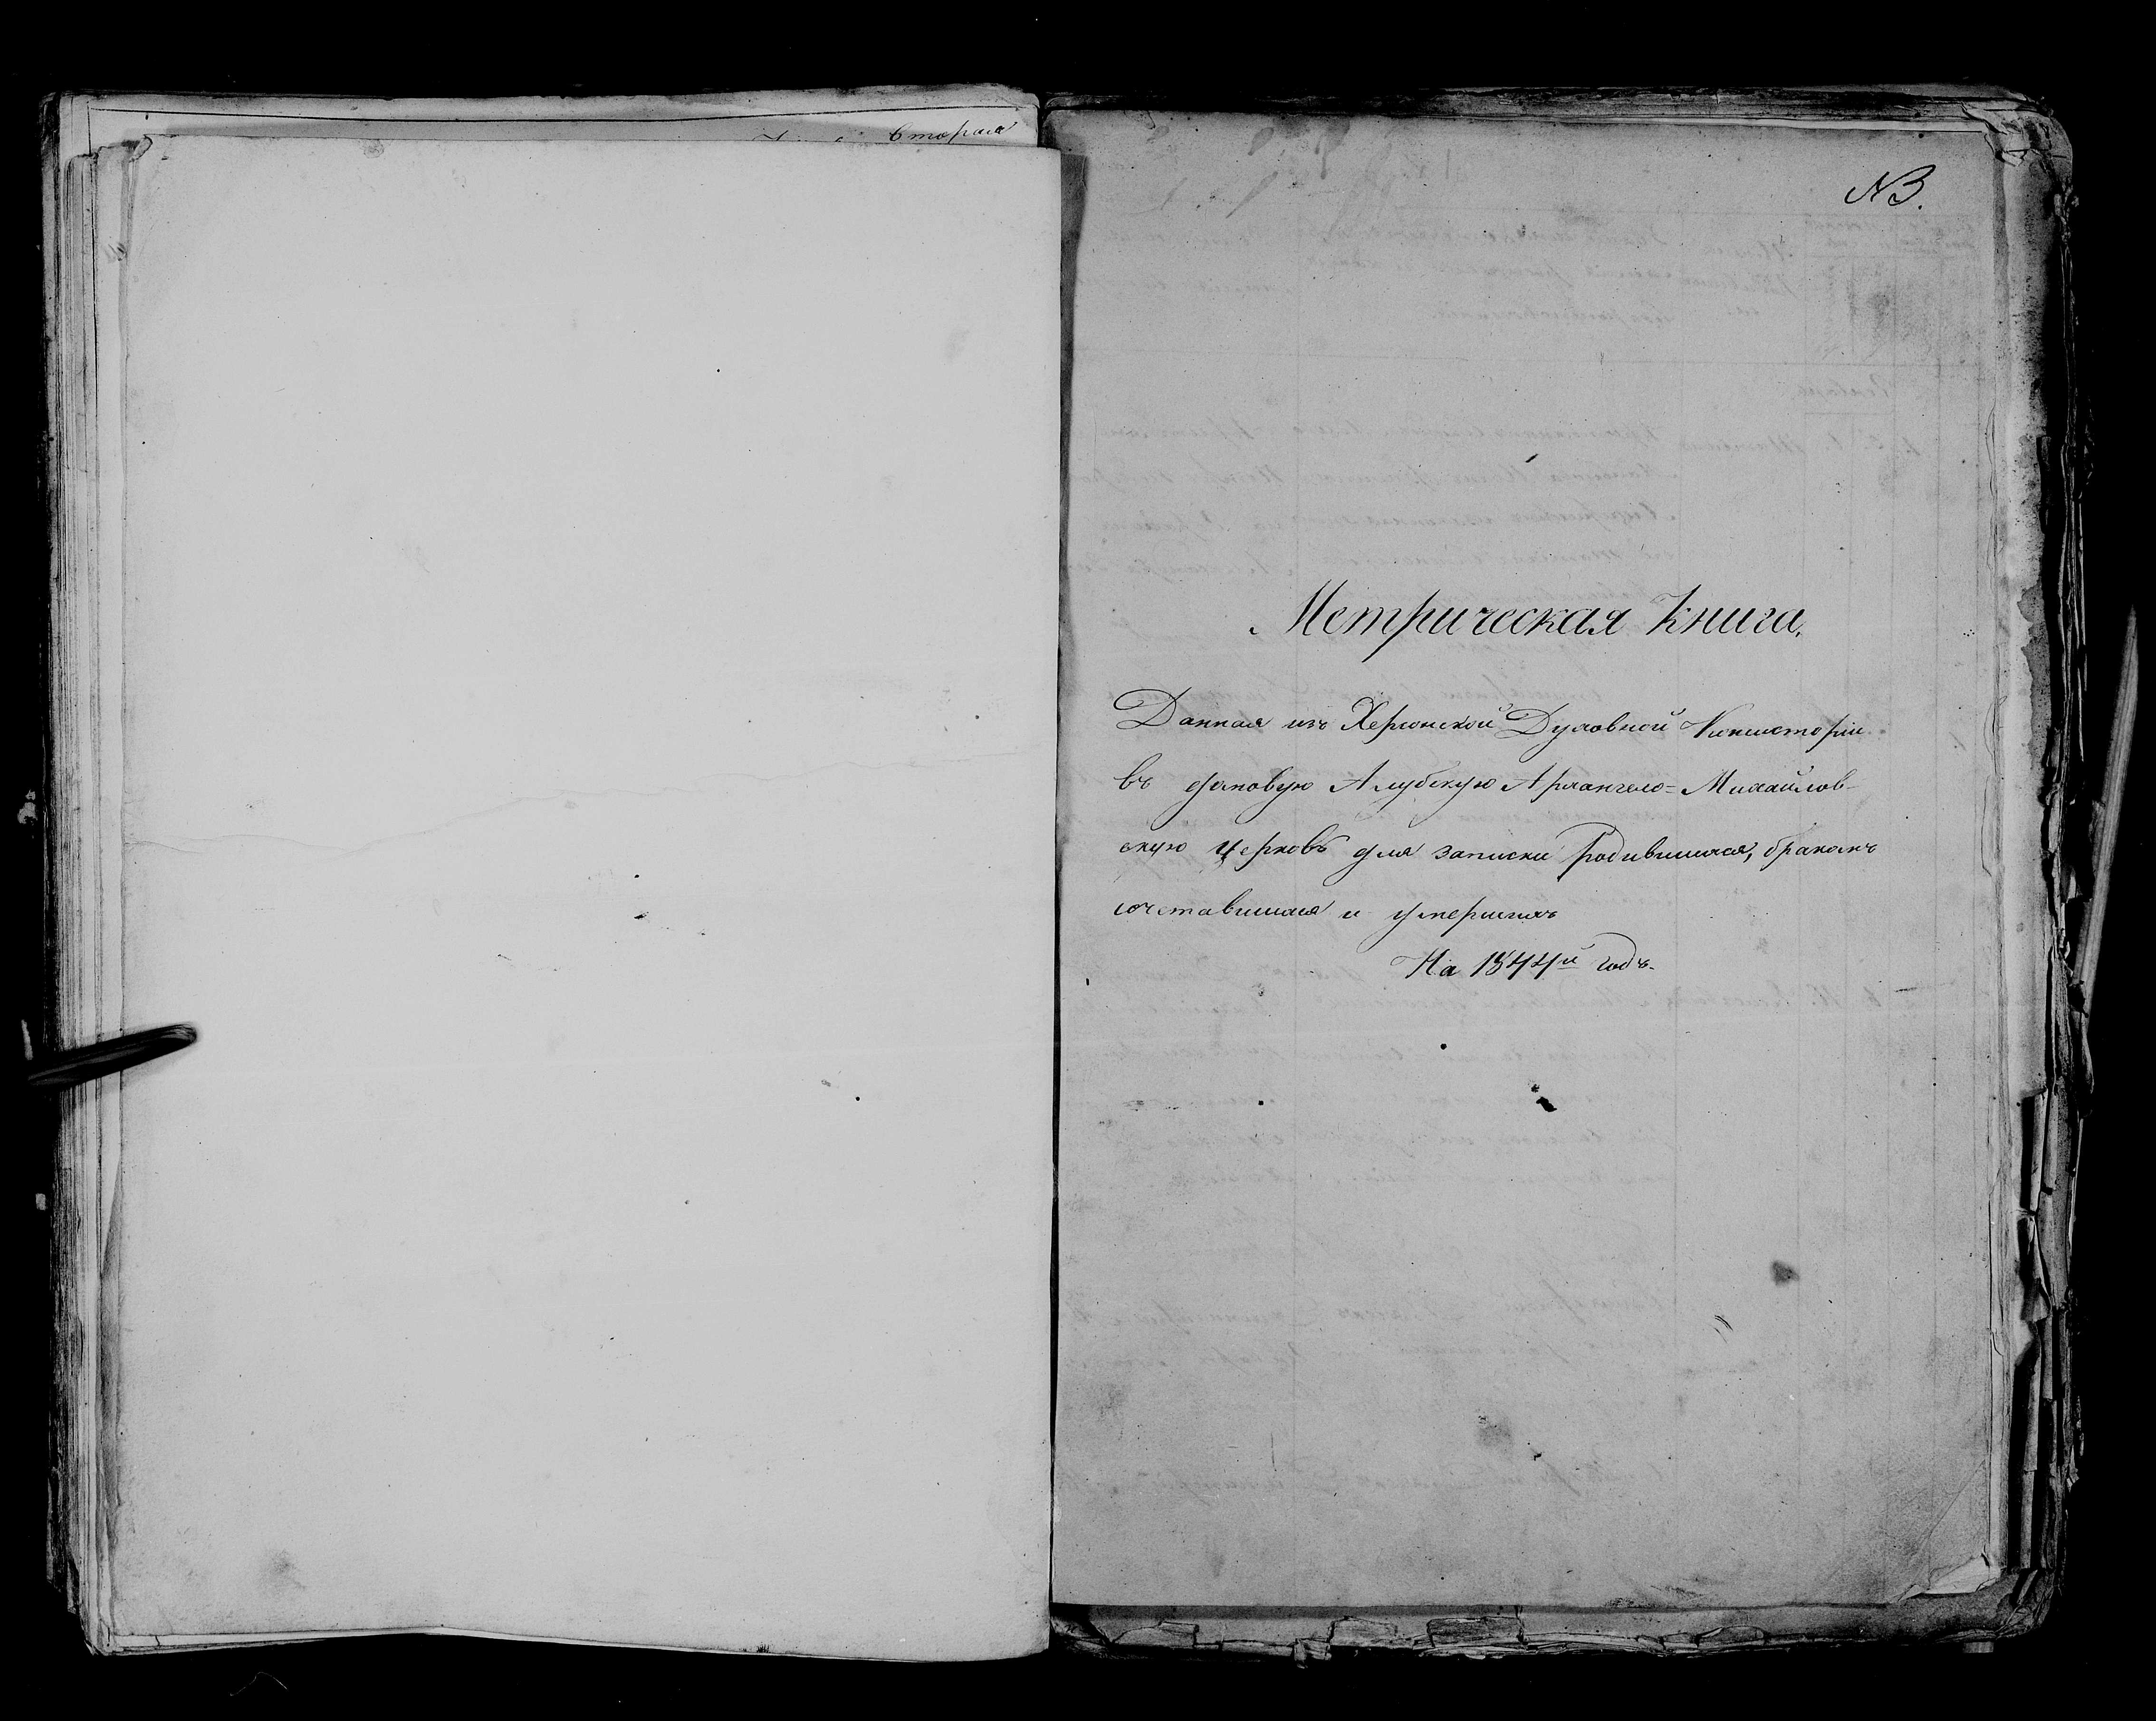 Вторая
№3.
Метрическая Книга.
Данная изъ Херсонской Духовной Консисторіи
въ домовую Алубскую Архангело=Михайлов-
скую Церковь для записки родившихся, бракомъ
сочетавшихся и умершихъ
На 1844й годъ.